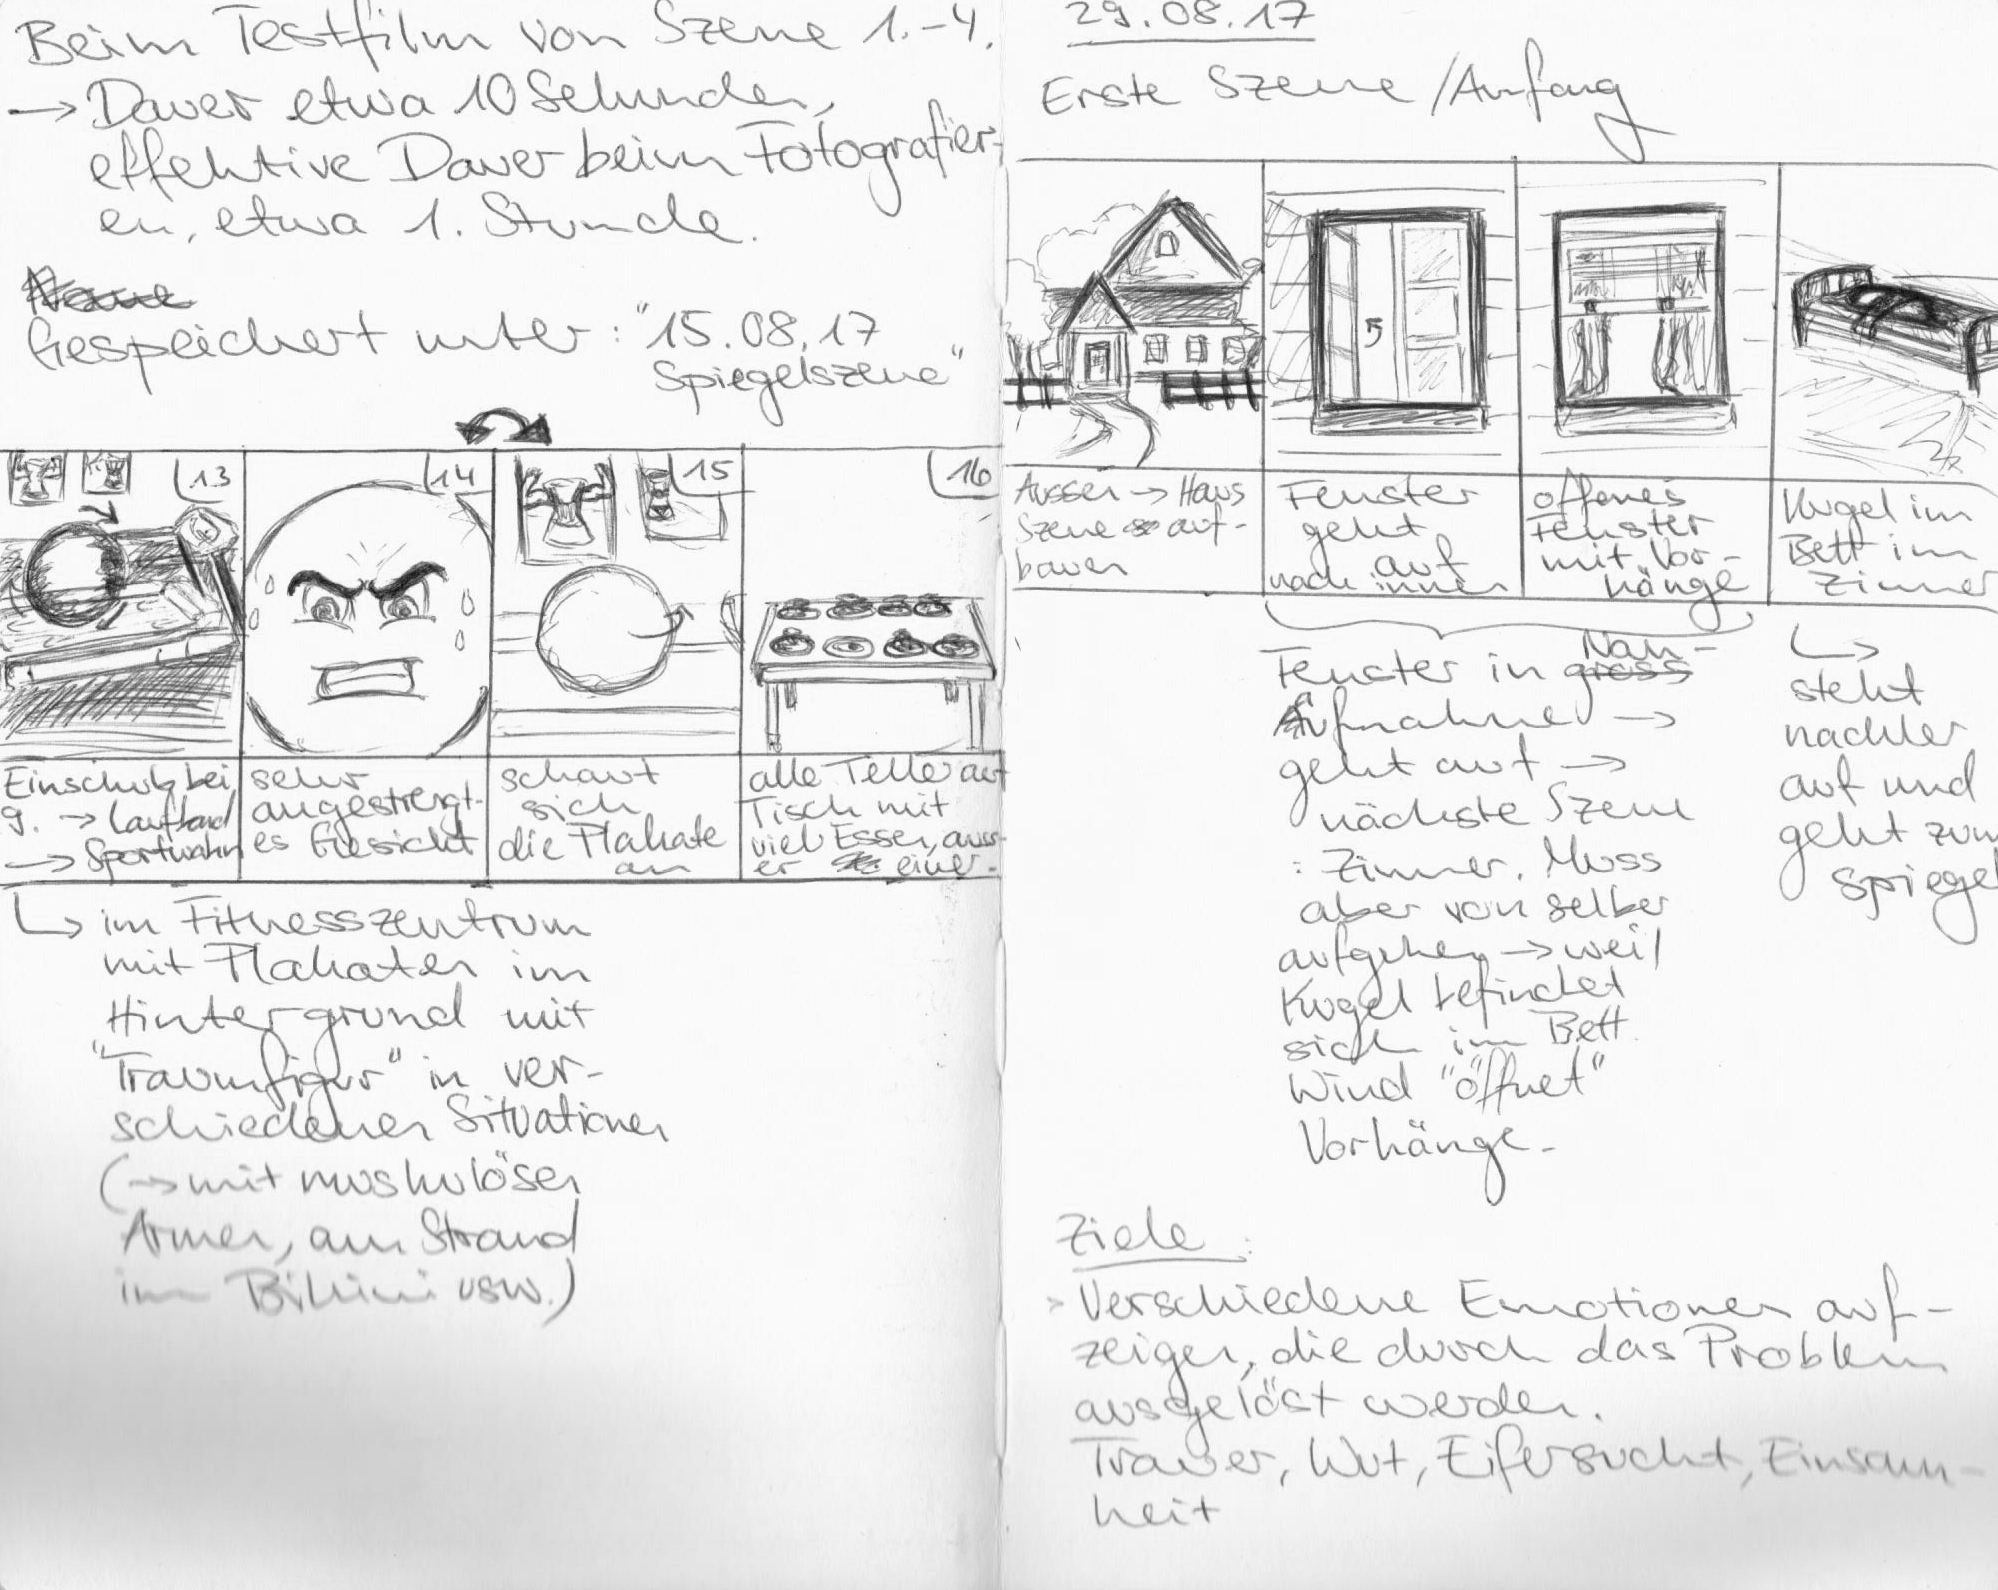 Beim Testfilm von Szene 1.-4.
→ Dauer etwa 10 Sekunden,
effektive Dauer beim Fotografier-
en, etwa 1. Stunde.
Gespeichert unter: "15.08.17
Spiegelszene"
13
14
15
16
Einschub bei
9. → Laufband
→ Sportwahn
sehr
angestrengt-
es Gesicht
schaut
sich
die Plakate
an
alle Teller auf
Tisch mit
viel Essen, auss-
er einer.
↳ im Fitnesszentrum
mit Plakaten im
Hintergrund mit
"Traumfigur" in ver-
schiedenen Situationen
(→ mit muskulösen
Armen, am Strand
im Bikini usw.)
29.08.17
Erste Szene /Anfang
Aussen → Haus
Szene auf-
bauen
Fenster
geht
auf
nach innen
offenes
Fenster
mit Vor-
hänge
Kugel im
Bett im
Zimmer
Fenster in gross Nah-
Aufnahme →
geht auf →
nächste Szene
: Zimmer. Muss
aber von selber
aufgehen → weil
Kugel befindet
sich im Bett
Wind "öffnet"
Vorhänge.
↳
steht
nachher
auf und
geht zum
Spiegel
Ziele:
> Verschiedene Emotionen auf-
zeigen, die durch das Problem
ausgelöst werden.
Trauer, Wut, Eifersucht, Einsam-
keit